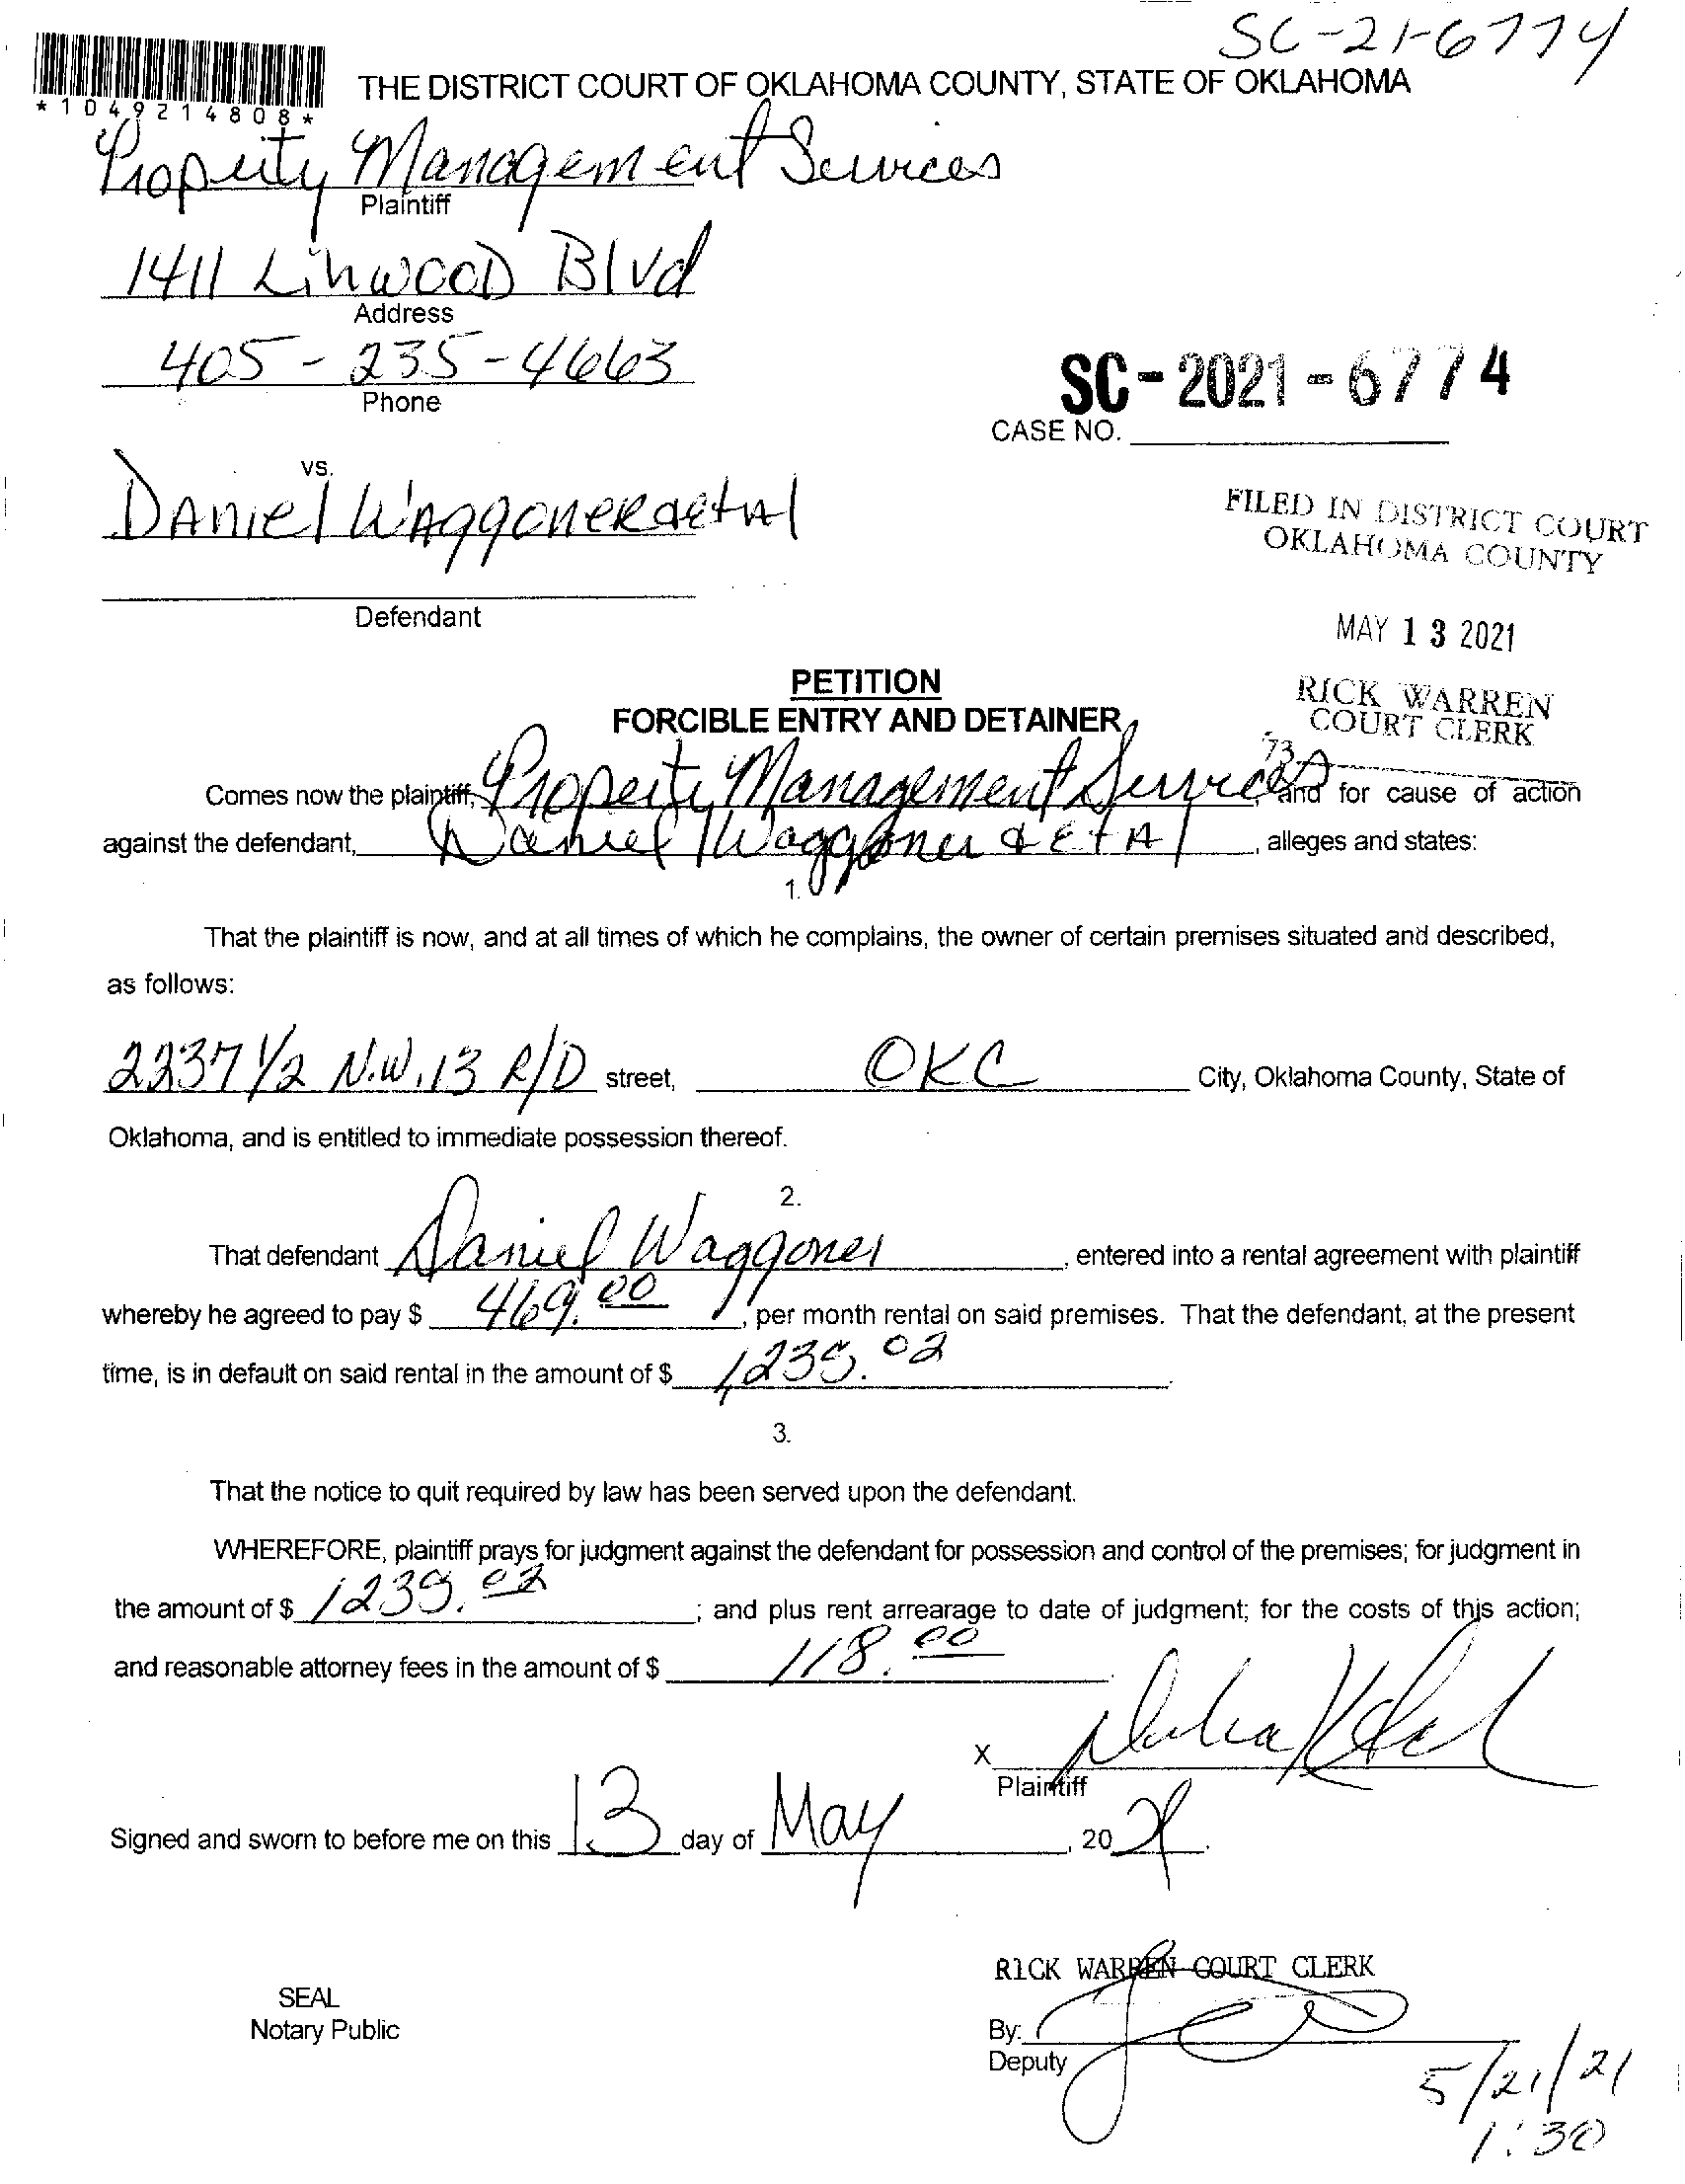 SC-21-6774
*1049214808*
THE DISTRICT COURT OF OKLAHOMA COUNTY, STATE OF OKLAHOMA
Property Management Services
Plaintiff
1411 Linwood Blvd
Address
405-235-4663
Phone
SC-2021-6774
CASE NO.
vs.
Daniel Waggoner & etal
Defendant
FILED IN DISTRICT COURT
OKLAHOMA COUNTY
MAY 13 2021
RICK WARREN
COURT CLERK
73
PETITION
FORCIBLE ENTRY AND DETAINER
Comes now the plaintiff, Property Management Services and for cause of action
against the defendant, Daniel Waggoner & etAl, alleges and states:
1.
That the plaintiff is now, and at all times of which he complains, the owner of certain premises situated and described,
as follows:
2237 1/2 N.W. 13 R/D street, OKC City, Oklahoma County, State of
Oklahoma, and is entitled to immediate possession thereof.
2.
That defendant Daniel Waggoner, entered into a rental agreement with plaintiff
whereby he agreed to pay $ 469.00, per month rental on said premises. That the defendant, at the present
time, is in default on said rental in the amount of $ .
3.
That the notice to quit required by law has been served upon the defendant.
WHEREFORE, plaintiff prays for judgment against the defendant for possession and control of the premises; for judgment in
the amount of $ ; and plus rent arrearage to date of judgment; for the costs of this action;
and reasonable attorney fees in the amount of $ 118.00.
X
Plaintiff
Signed and sworn to before me on this 13 day of May, 2021.
RICK WARREN COURT CLERK
SEAL
Notary Public
By:
Deputy
5/21/21
1:30